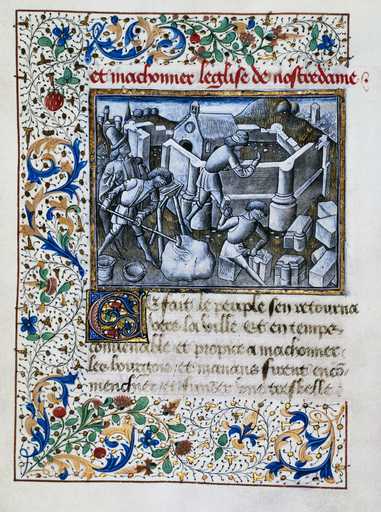 et machonner leglise de nostredame
Ce fait le peuple sen retourna
vers la ville Et en temps
conuenable et propice a machonner
les bourgois et manans furent encō
mencher et